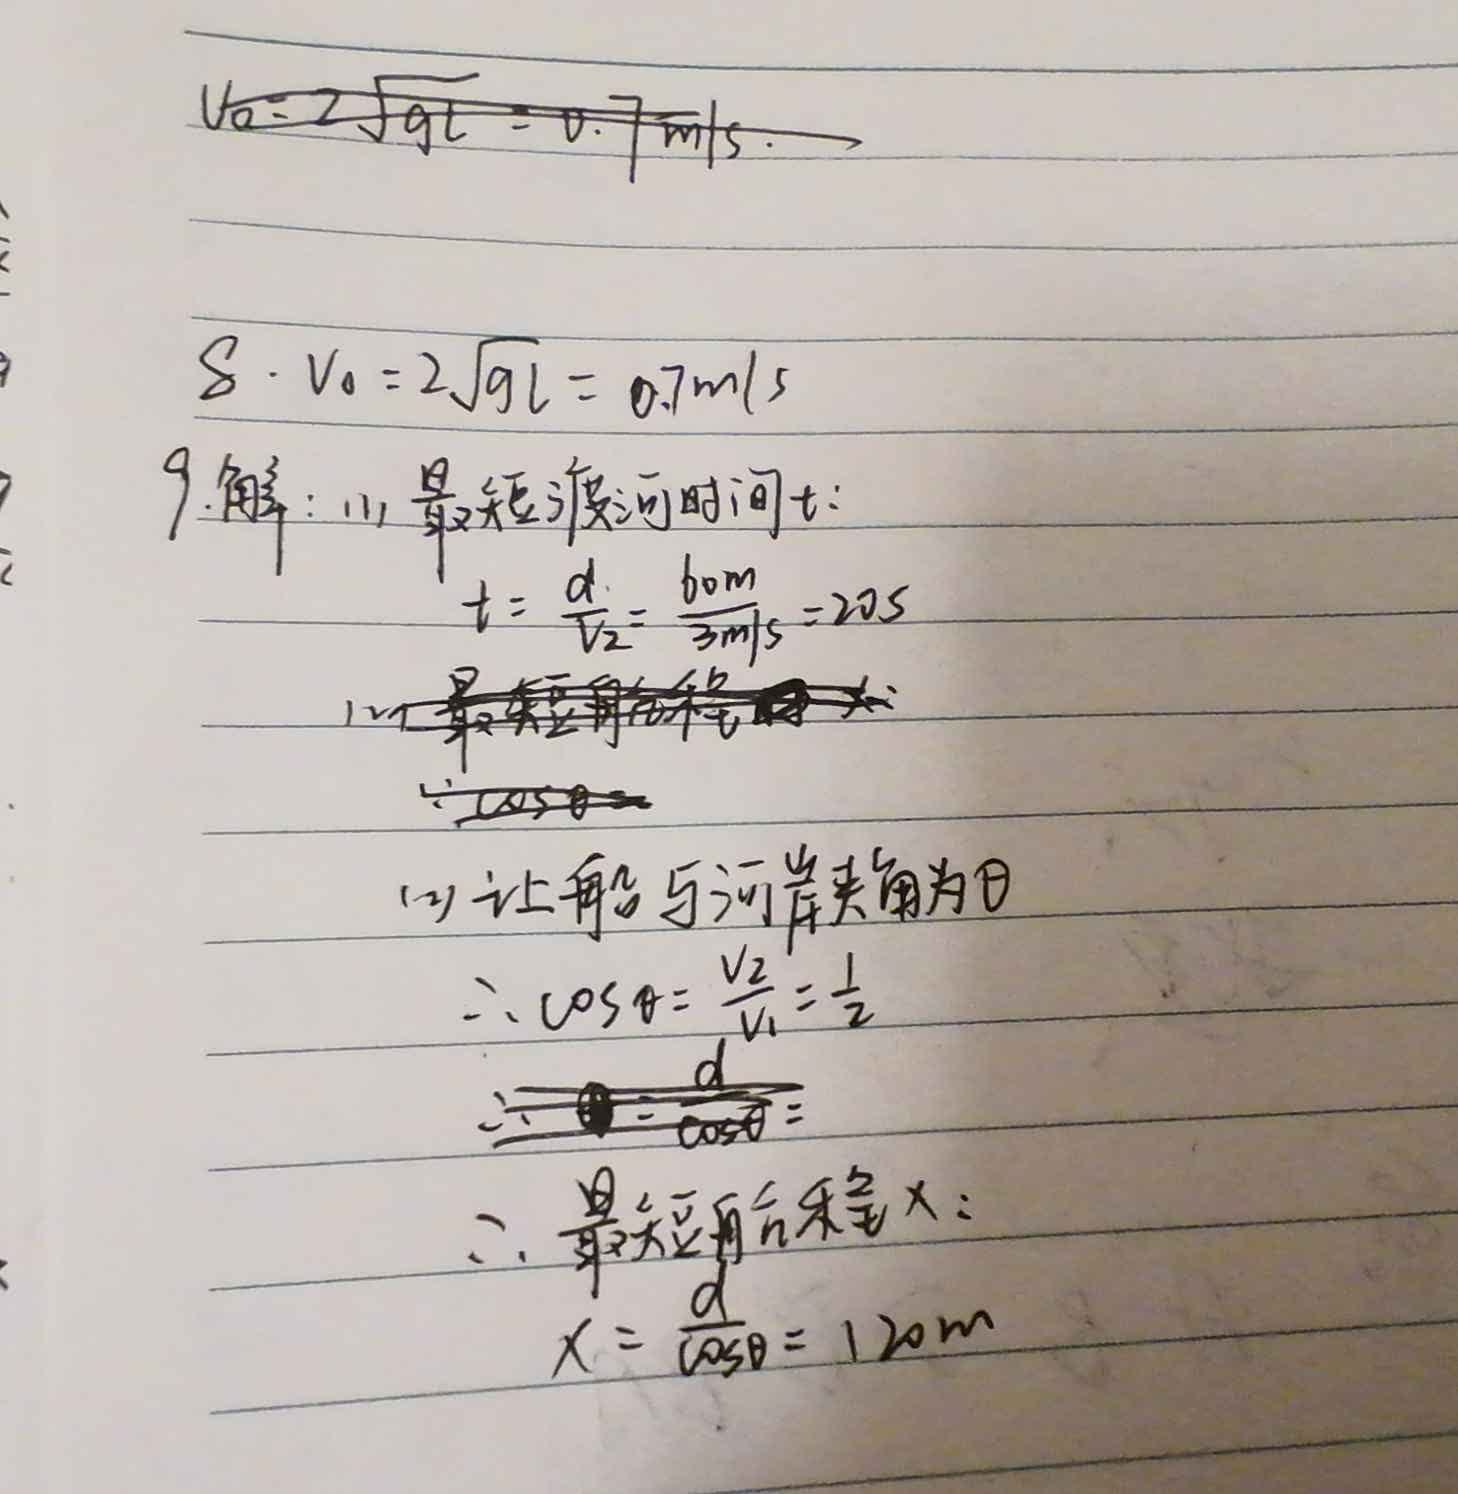 V₀=2√gL = 0.7m/s.
8. V₀=2√gL = 0.7m/s
9.解:(1)最短渡河时间t:
t= d/V₂ = 60m/3m/s =20s
(2) 最短船程 x:
∵cosθ=
(2)让船与河岸夹角为θ
∴cosθ= V₂/V₁ = 1/2
∴ = d/cosθ =
∴最短船程x:
x = d/cosθ = 120m